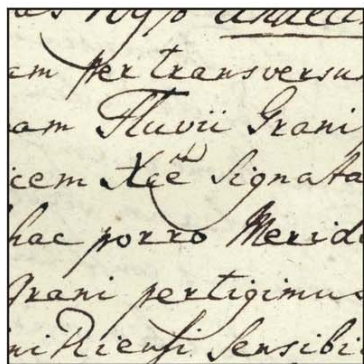 am per transversu
am Fluvii Grani
cem signata
hac porro Merid
Grani pertigimus
sensibi